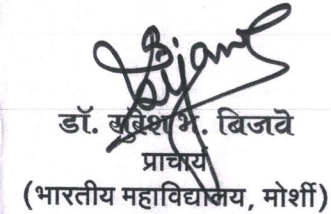 डॉ. सुरेश भ. बिजवे
प्राचार्य
(भारतीय महाविद्यालय, मोर्शी)